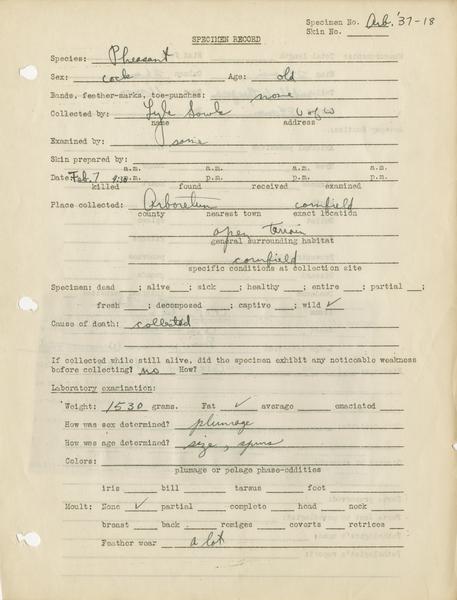 Specimen No. Arb. '37-18
Skin No.
SPECIMEN RECORD
Species: Pheasant
Sex: cock Age: old
Bands, feather-marks, toe-punches: none
Collected by: Lyle Sowls U of W
name address
Examined by: same
Skin prepared by:
a.m. a.m. a.m. a.m.
Date: Feb. 7 p.m. p.m. p.m. p.m.
killed found received examined
Place collected: Arboretum cornfield
county nearest town exact location
open terrain
general surrounding habitat
cornfield
specific conditions at collection site
Specimen: dead ; alive ; sick ; healthy ; entire ; partial ;
fresh ; decomposed ; captive ; wild ✓
Cause of death: collected
If collected while still alive, did the specimen exhibit any noticeable weakness
before collecting? no How?
Laboratory examination:
Weight: 1530 grams. Fat ✓ average emaciated
How was sex determined? plumage
How was age determined? size, spurs
Colors:
plumage or pelage phase-oddities
iris bill tarsus foot
Moult: None ✓ partial complete head neck
breast back remiges coverts retrices
Feather wear a lot